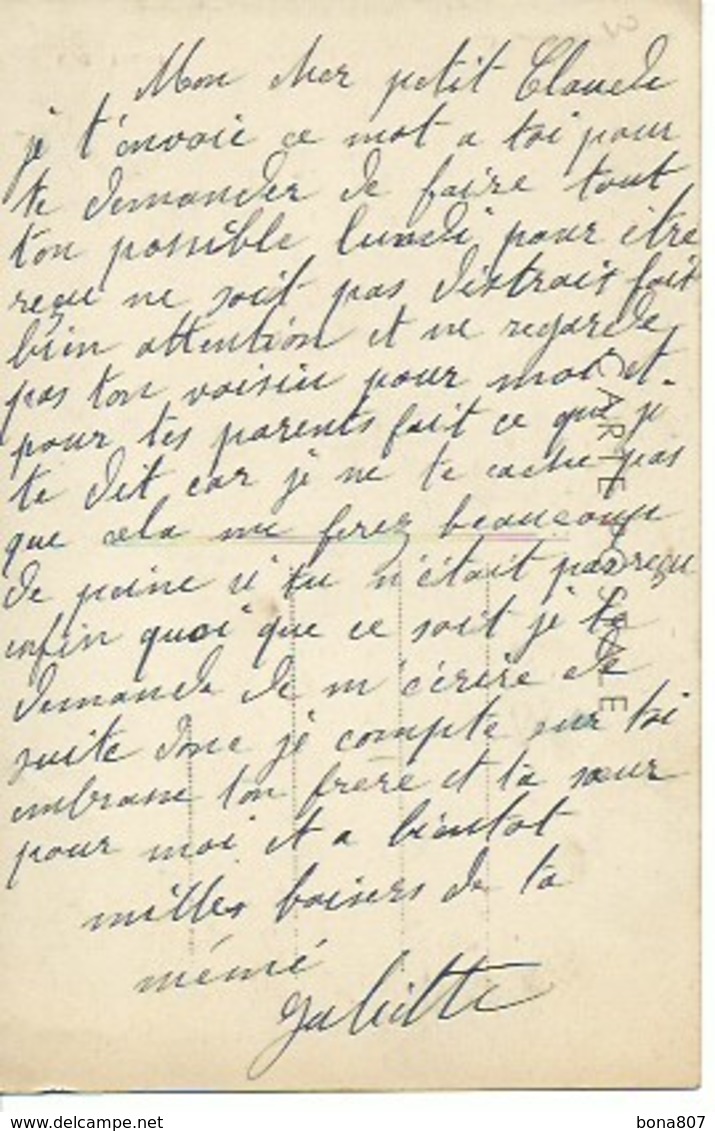 Mon cher petit Claude
je t'envoie ce mot a toi pour
te demander de faire tout
ton possible lundi pour être
reçu ne soit pas distrais fait
bien attention et ne regarde
pas ton voisin pour moi et
pour tes parents fait ce que je
te dit car je ne te cache pas
que cela me ferez beaucoup
de peine si tu n'était pas reçu
enfin quoi que ce soit je te
demande de m'écrire de
suite donc je compte sur toi
embrasse ton frère et ta sœur
pour moi et a bientot
milles baisers de ta
mémé
Juliette
CARTE POSTALE
bona807